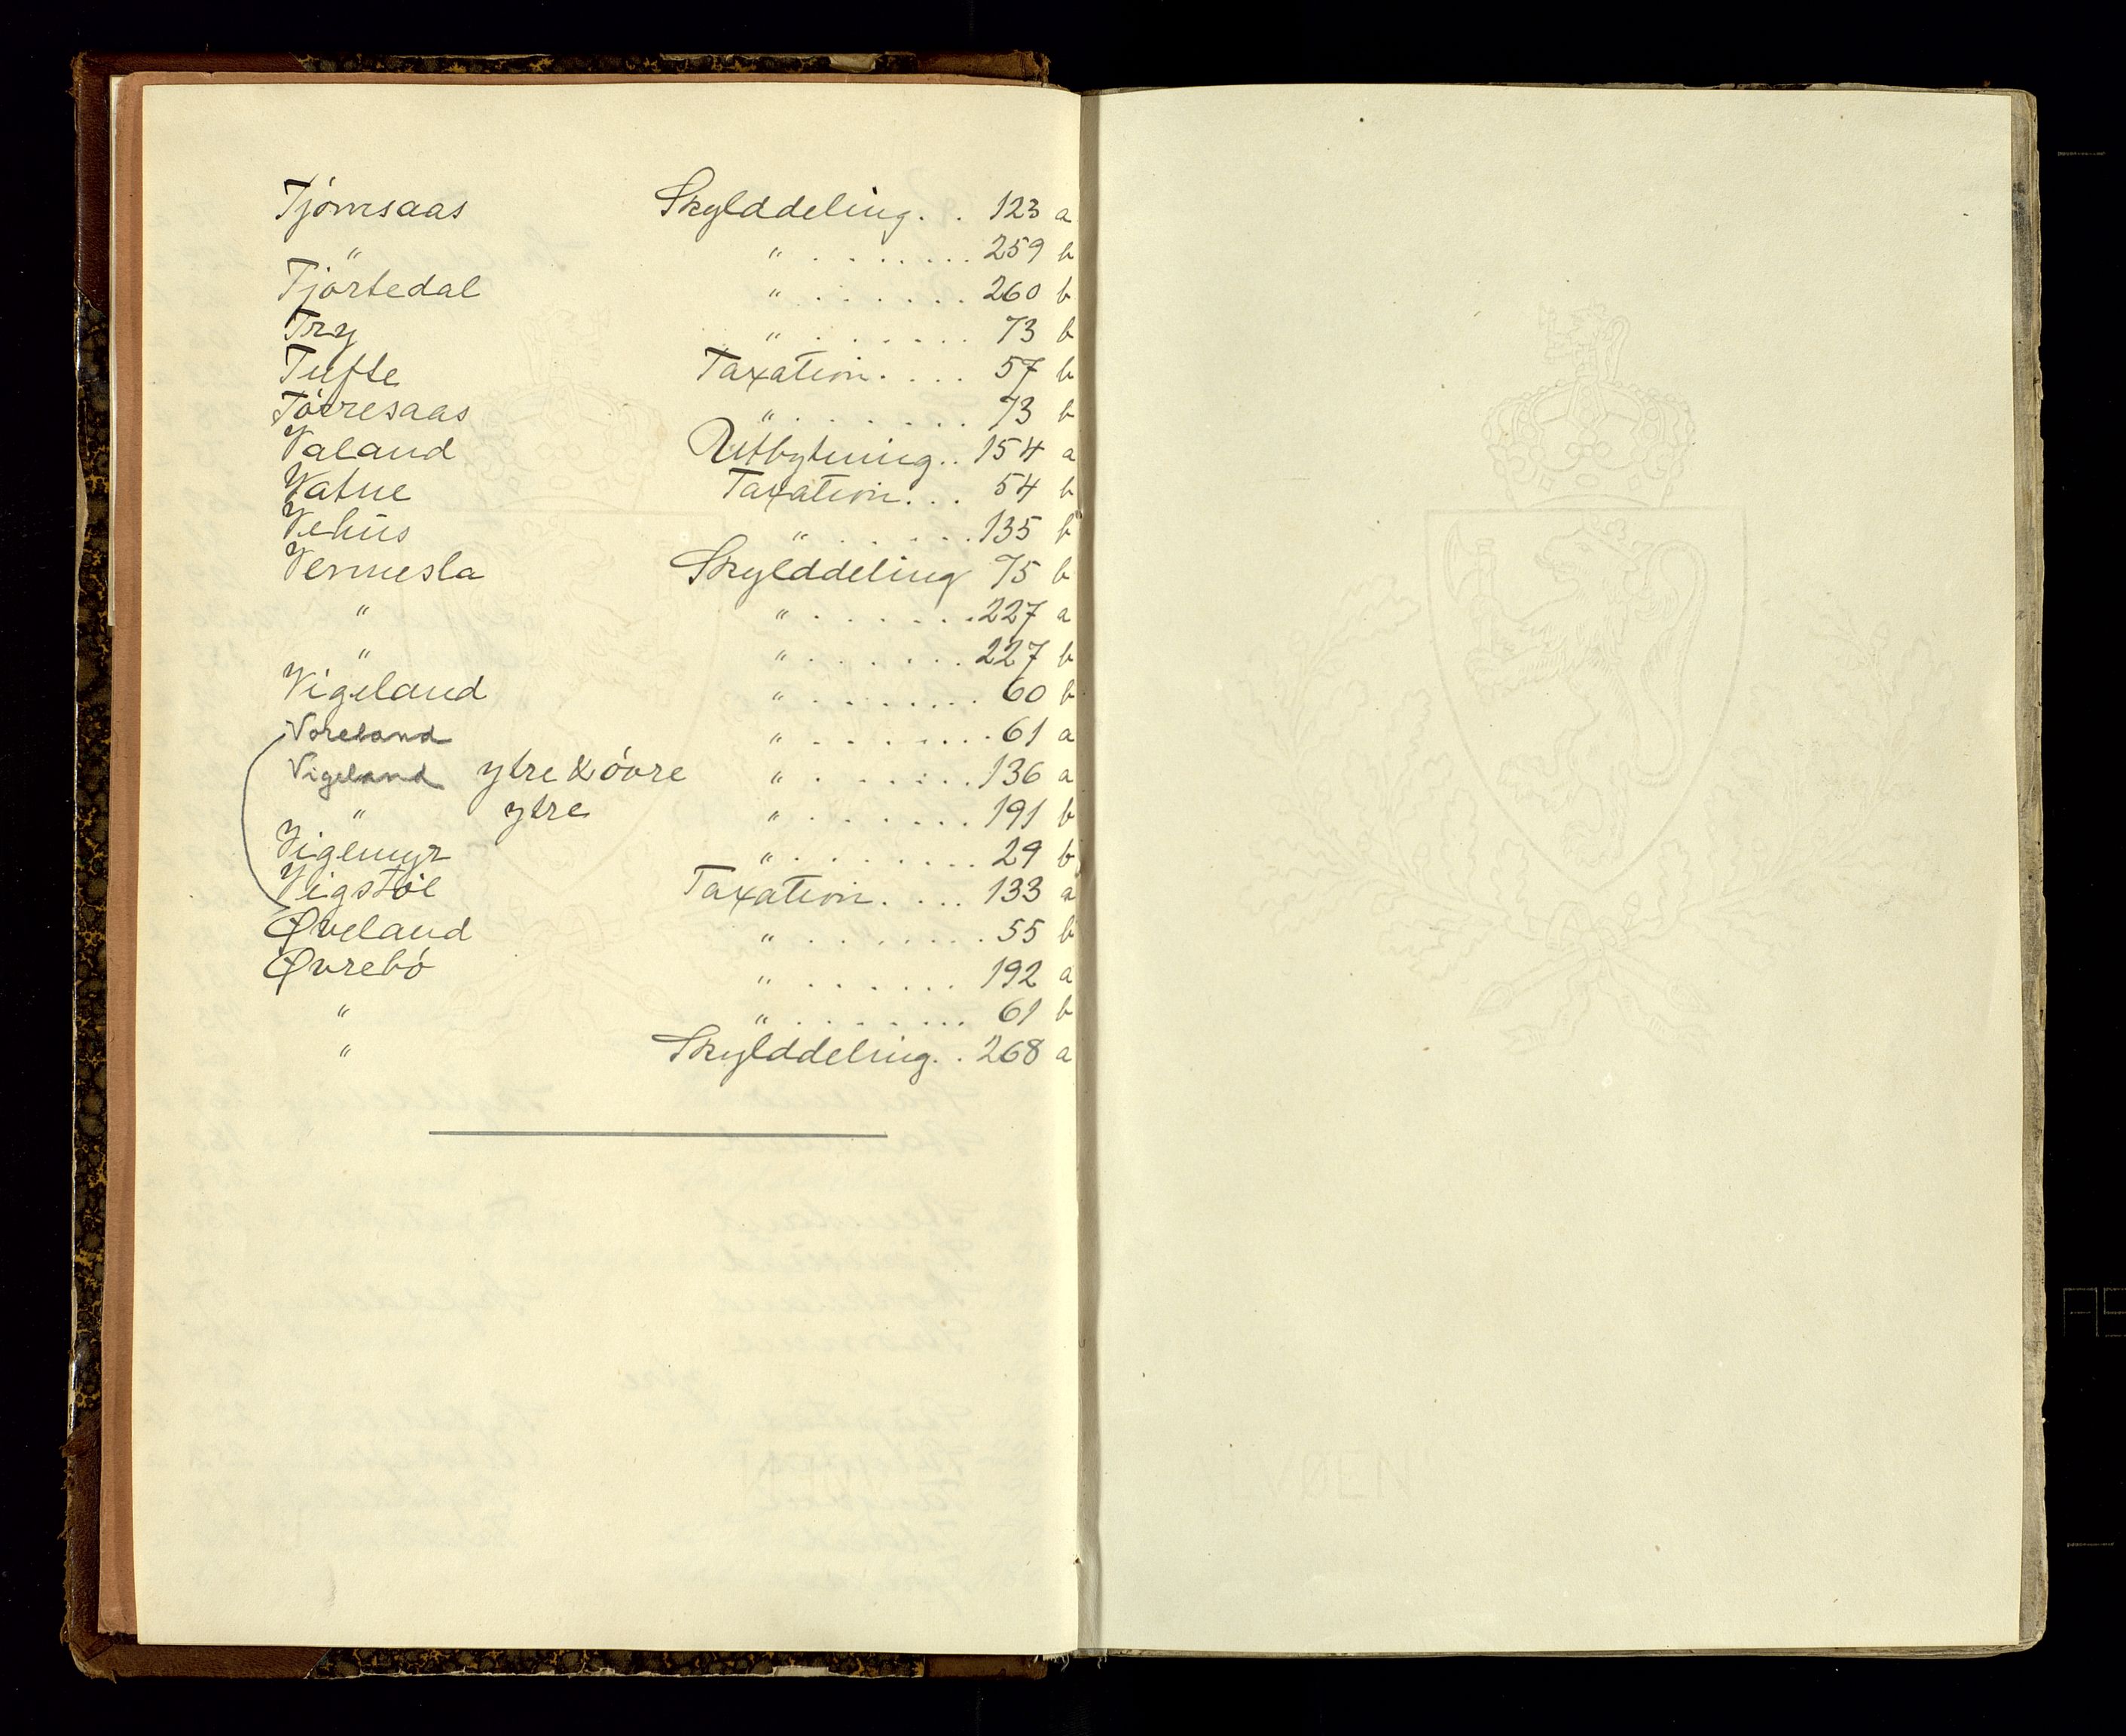 Tjömsaas Skylddeling. . 123 a
" " . . . . . . . . 259 b
Tjörtedal " . . . . . . . 260 b
Try " . . . . . . . 73 b
Tufte Taxation. . . . 57 b
Törresaas " . . . . . . . 73 b
Valand Utbytning. . 154 a
Vatne Taxation. . . 54 b
Vehus " . . . . . . 135 b
Vennesla Skylddeling 75 b
" " . . . . . . . 227 a
" " . . . . . . . 227 b
Vigeland " . . . . . . . . 60 b
Voreland " . . . . . . . . 61 a
Vigeland ytre & óvre " . . . . . . . 136 a
" ytre " . . . . . . . 191 b
Vigemyr " . . . . . . . . 29 b
Vigstöl Taxation. . . . 133 a
Øveland " . . . . . . . . 55 b
Øvrebó " . . . . . . . 192 a
" " . . . . . . . . 61 b
" Skylddeling. . 268 a
ALVØEN